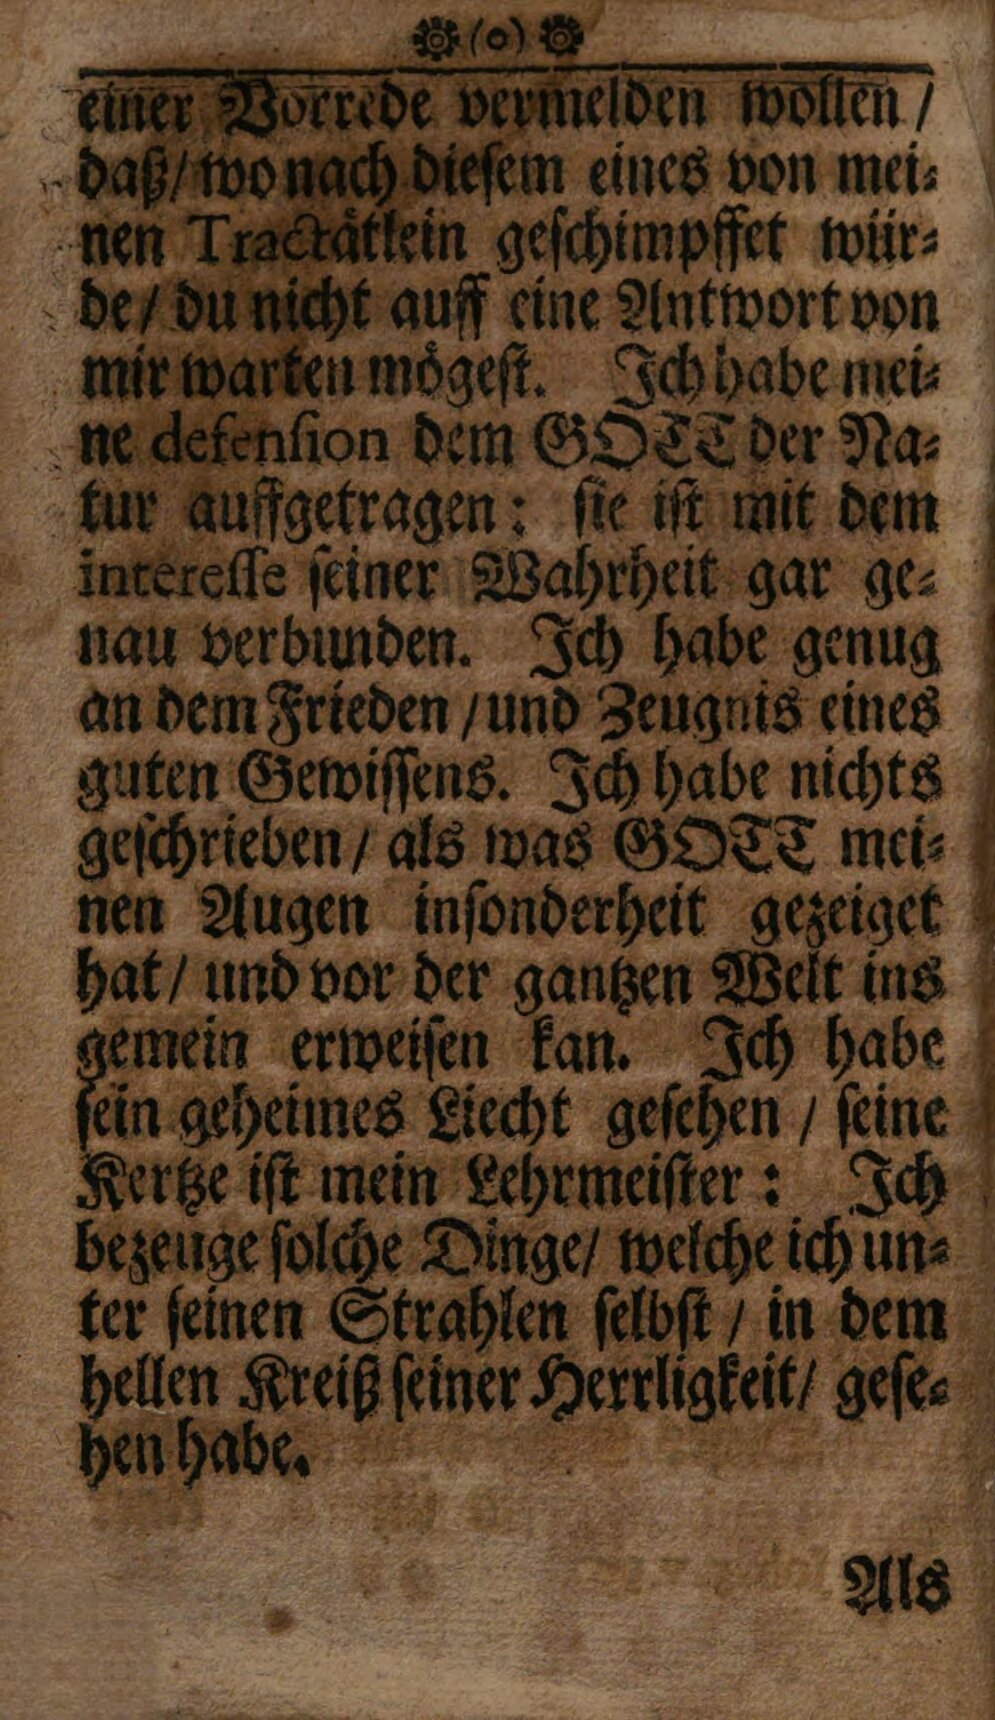 (o)
einer Vorrede vermelden wollen /
daß/ wo nach diesem eines von mei-
nen Tractätlein geschimpffet wür-
de / du nicht auff eine Antwort von
mir warten mögest. Ich habe mei-
ne defension dem GOTT der Na-
tur auffgetragen: sie ist mit dem
interesse seiner Wahrheit gar ge-
nau verbunden. Ich habe genug
an dem Frieden / und Zeugnis eines
guten Gewissens. Ich habe nichts
geschrieben / als was GOTT mei-
nen Augen insonderheit gezeiget
hat / und vor der gantzen Welt ins
gemein erweisen kan. Ich habe
sein geheimes Liecht gesehen / seine
Kertze ist mein Lehrmeister: Ich
bezeuge solche Dinge/ welche ich un-
ter seinen Strahlen selbst / in dem
hellen Kreiß seiner Herrligkeit/ gese-
hen habe.
Als